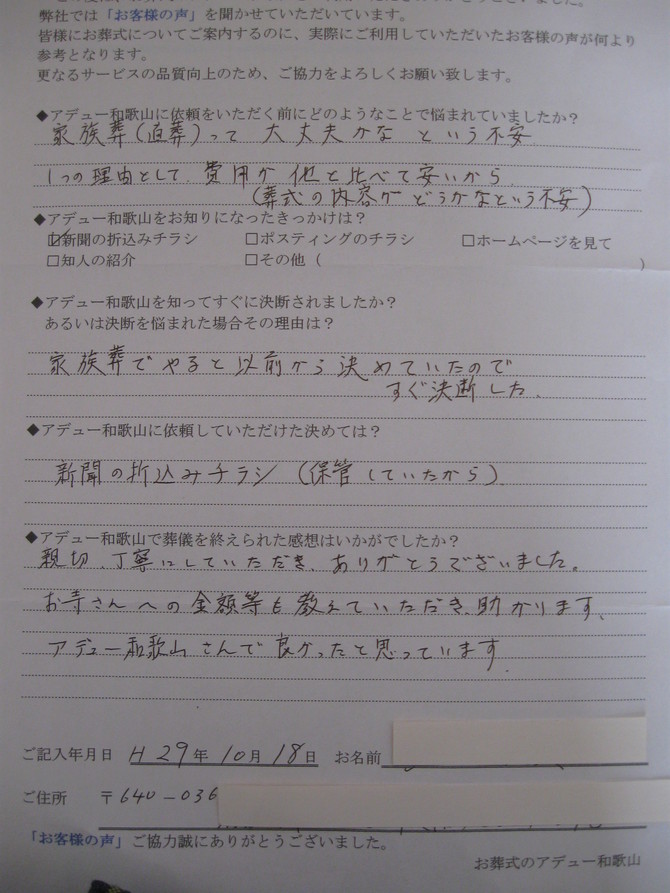 弊社では「お客様の声」を聞かせていただいています。
皆様にお葬式についてご案内するのに、実際にご利用していただいたお客様の声が何より
参考となります。
更なるサービスの品質向上のため、ご協力をよろしくお願い致します。
◆アデュー和歌山に依頼をいただく前にどのようなことで悩まれていましたか？
家族葬(直葬)って 大丈夫かな という不安
1つの理由として、費用が他と比べて安いから
(葬式の内容がどうかなという不安)
◆アデュー和歌山をお知りになったきっかけは？
☑新聞の折込みチラシ □ポスティングのチラシ □ホームページを見て
□知人の紹介 □その他（ ）
◆アデュー和歌山を知ってすぐに決断されましたか？
あるいは決断を悩まれた場合その理由は？
家族葬でやると以前から決めていたので
すぐ決断した。
◆アデュー和歌山に依頼していただけた決めては？
新聞の折込みチラシ (保管していたから)
◆アデュー和歌山で葬儀を終えられた感想はいかがでしたか？
親切、丁寧にしていただき、ありがとうございました。
お寺さんへの金額等も教えていただき、助かります、
アデュー和歌山さんで良かったと思っています
ご記入年月日 H29年10月18日 お名前
ご住所 〒640-036
「お客様の声」ご協力誠にありがとうございました。
お葬式のアデュー和歌山